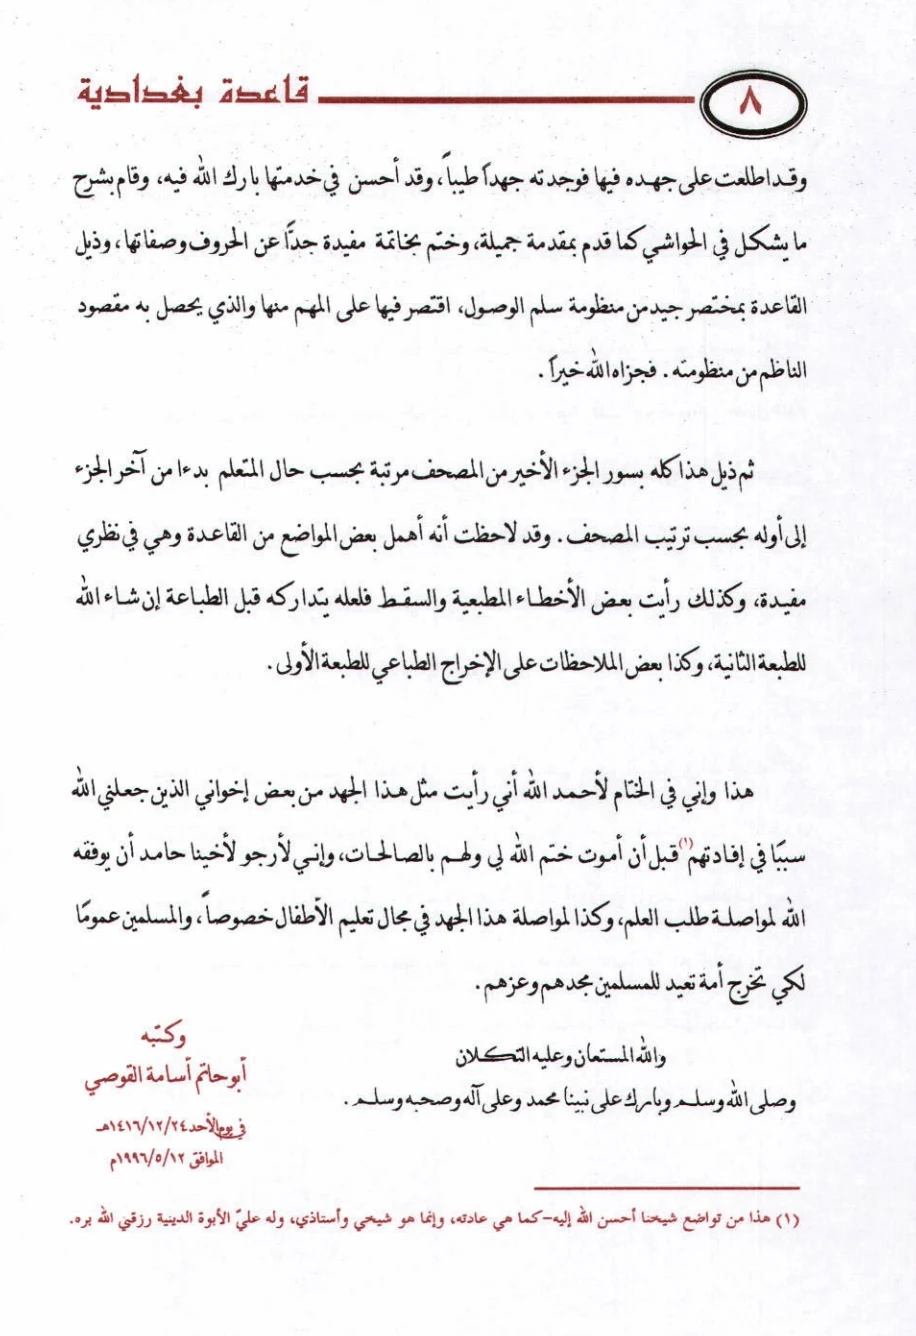 ٨
قاعدة بغدادية
وقد اطلعت على جهده فيها فوجدته جهداً طيباً، وقد أحسن في خدمتها بارك الله فيه، وقام بشرح
ما يشكل في الحواشي كما قدم بمقدمة جميلة، وختم بخاتمة مفيدة جدًّا عن الحروف وصفاتها، وذيل
القاعدة بمختصر جيد من منظومة سلم الوصول، اقتصر فيها على المهم منها والذي يحصل به مقصود
الناظم من منظومته. فجزاه الله خيراً.
ثم ذيل هذا كله بسور الجزء الأخير من المصحف مرتبة بحسب حال المتعلم بدءا من آخر الجزء
إلى أوله بحسب ترتيب المصحف. وقد لاحظت أنه أهمل بعض المواضع من القاعدة وهي في نظري
مفيدة، وكذلك رأيت بعض الأخطاء المطبعية والسقط فلعله يتداركه قبل الطباعة إن شاء الله
للطبعة الثانية، وكذا بعض الملاحظات على الإخراج الطباعي للطبعة الأولى.
هذا وإني في الختام لأحمد الله أني رأيت مثل هذا الجهد من بعض إخواني الذين جعلني الله
سببًا في إفادتهم(١) قبل أن أموت ختم الله لي ولهم بالصالحات، وإني لأرجو لأخينا حامد أن يوفقه
الله لمواصلة طلب العلم، وكذا لمواصلة هذا الجهد في مجال تعليم الأطفال خصوصاً، والمسلمين عمومًا
لكي تخرج أمة تعيد للمسلمين مجدهم وعزهم.
والله المستعان وعليه التكلان
وصلى الله وسلم وبارك على نبينا محمد وعلى آله وصحبه وسلم.
وكتبه
أبو حاتم أسامة القوصي
في يوم الأحد ١٤١٦/١٢/٢٤هـ
الموافق ١٩٩٦/٥/١٢م
(١) هذا من تواضع شيخنا أحسن الله إليه-كما هي عادته، وإنما هو شيخي وأستاذي، وله عليّ الأبوة الدينية رزقني الله بره.